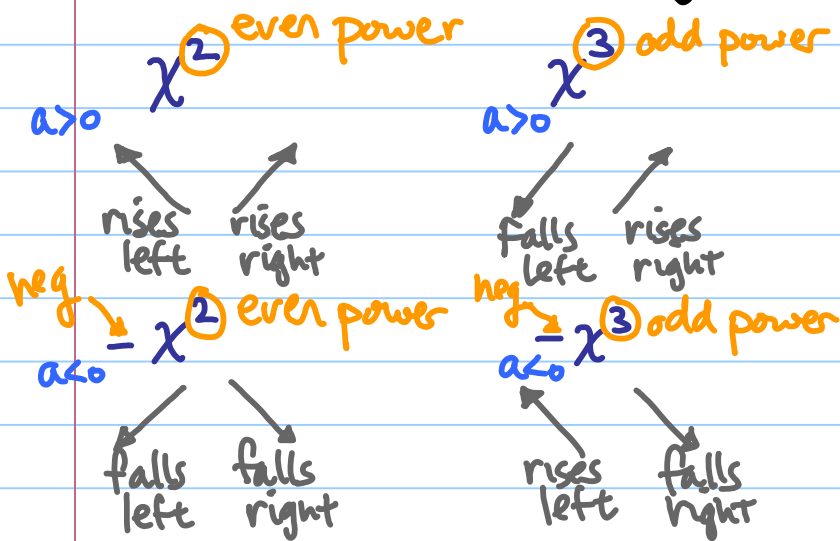 x² even power
a>0
rises left
rises right
x³ odd power
a>0
falls left
rises right
neg
- x² even power
a<0
falls left
falls right
neg
- x³ odd power
a<0
rises left
falls right